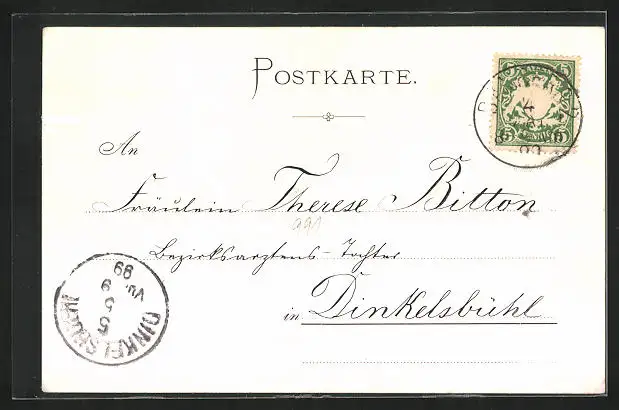 POSTKARTE.
5 5
An
Fräulein Therese Bitton
991
Bezirksarztens-Tochter
in Dinkelsbühl
DINKELSBÜHL
5
5
99